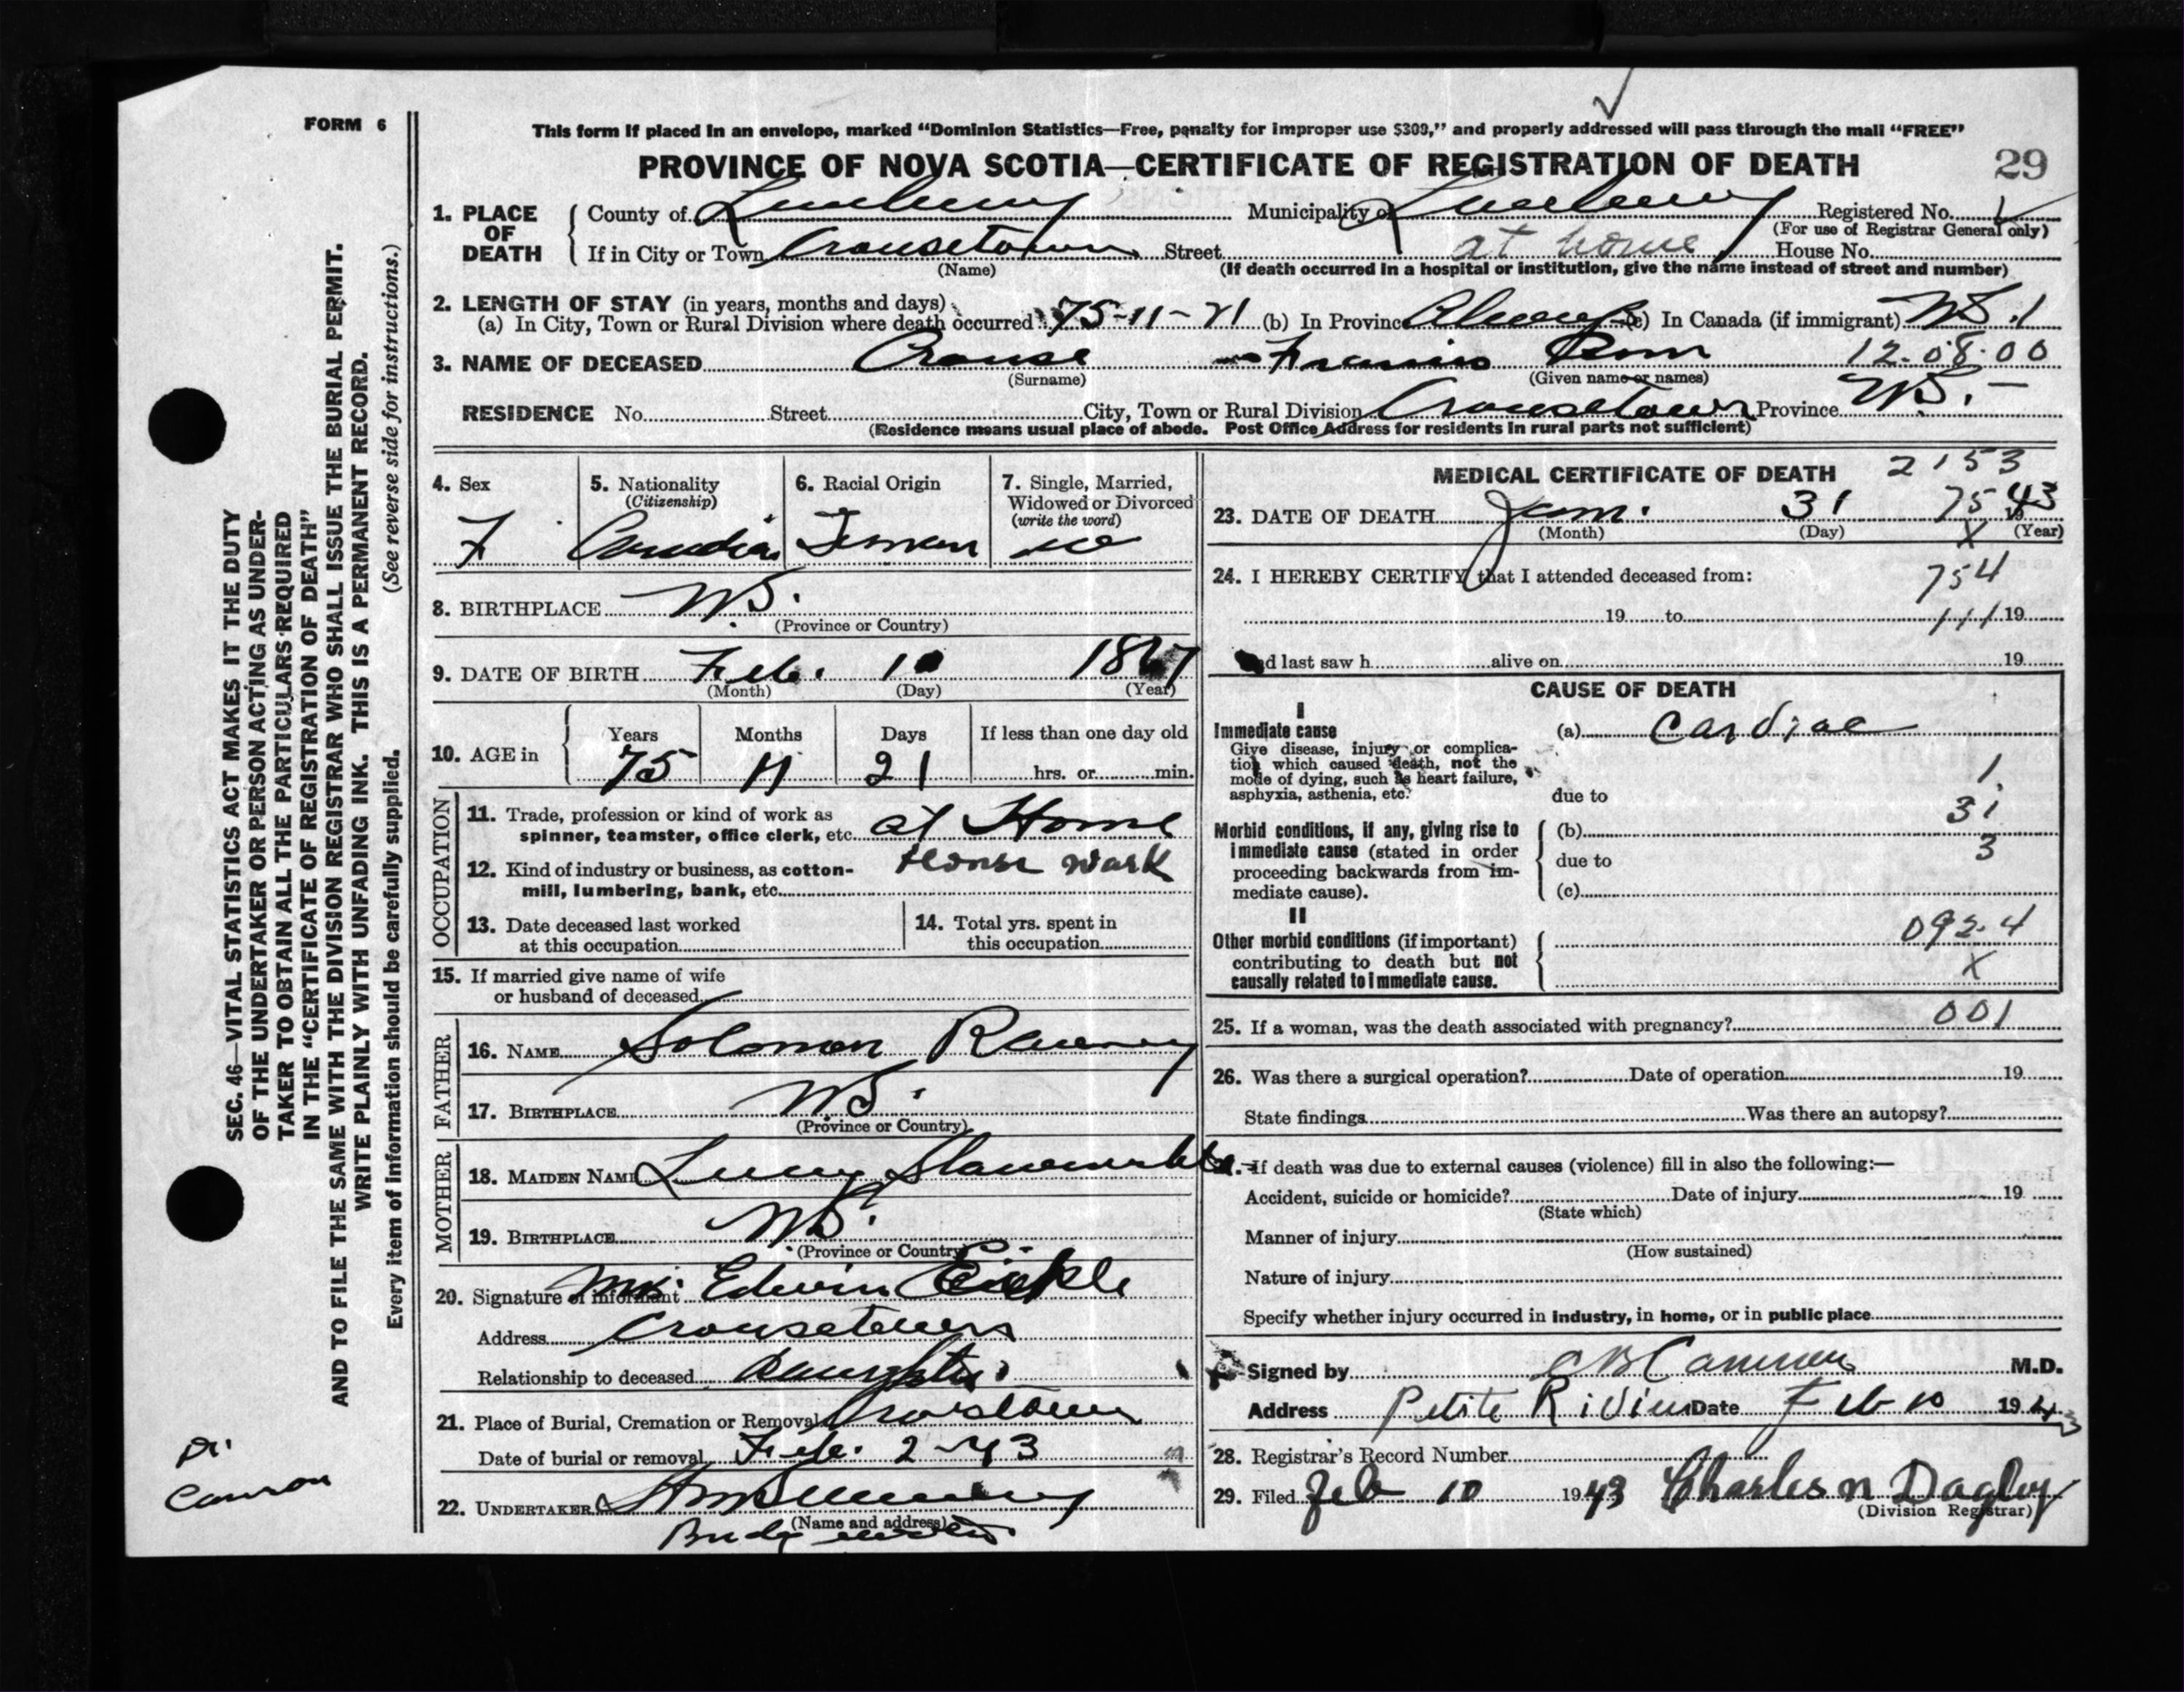 FORM 6
This form if placed in an envelope, marked "Dominion Statistics—Free, penalty for improper use $300," and properly addressed will pass through the mail "FREE"
PROVINCE OF NOVA SCOTIA—CERTIFICATE OF REGISTRATION OF DEATH
29
1. PLACE OF DEATH
County of Lunenburg Municipality of Lunenburg Registered No.
(For use of Registrar General only)
If in City or Town Crousetown Street at home House No.
(Name) (If death occurred in a hospital or institution, give the name instead of street and number)
2. LENGTH OF STAY (in years, months and days)
(a) In City, Town or Rural Division where death occurred 75-11-21 (b) In Province Always (c) In Canada (if immigrant) NS.1
3. NAME OF DECEASED Crouse Francis 12-08-00
(Surname) (Given name or names)
RESIDENCE No. Street City, Town or Rural Division Crousetown Province NS. —
(Residence means usual place of abode. Post Office Address for residents in rural parts not sufficient)
4. Sex
F
5. Nationality
(Citizenship)
Canadian
6. Racial Origin
7. Single, Married,
Widowed or Divorced
(write the word)
8. BIRTHPLACE NS.
(Province or Country)
9. DATE OF BIRTH Feb. 10 1867
(Month) (Day) (Year)
10. AGE in
Years Months Days If less than one day old
75 11 21 hrs. or min.
OCCUPATION
11. Trade, profession or kind of work as
spinner, teamster, office clerk, etc. at Home
12. Kind of industry or business, as cotton-
mill, lumbering, bank, etc. House Work
13. Date deceased last worked
at this occupation
14. Total yrs. spent in
this occupation
15. If married give name of wife
or husband of deceased
FATHER
16. NAME Solomon
17. BIRTHPLACE NS.
(Province or Country)
MOTHER
18. MAIDEN NAME Lucy
19. BIRTHPLACE NS.
(Province or Country)
20. Signature of informant Mrs. Edwin Eikle
Address Crousetown
Relationship to deceased Daughter
21. Place of Burial, Cremation or Removal Crousetown
Date of burial or removal Feb. 2-43
22. UNDERTAKER
(Name and address)
Bridgewater
MEDICAL CERTIFICATE OF DEATH 2153
23. DATE OF DEATH Jan. 31 75 1943
(Month) (Day) X (Year)
24. I HEREBY CERTIFY that I attended deceased from: 754
19 to 111 19
and last saw h alive on 19
CAUSE OF DEATH
I
Immediate cause
Give disease, injury or complica-
tion which caused death, not the
mode of dying, such as heart failure,
asphyxia, asthenia, etc.
(a) Cardiac
1
due to
31
Morbid conditions, if any, giving rise to
immediate cause (stated in order
proceeding backwards from im-
mediate cause).
(b)
3
due to
(c)
II
Other morbid conditions (if important)
contributing to death but not
causally related to immediate cause.
092.4
X
25. If a woman, was the death associated with pregnancy? 001
26. Was there a surgical operation? Date of operation 19
State findings Was there an autopsy?
If death was due to external causes (violence) fill in also the following:—
Accident, suicide or homicide? Date of injury 19
(State which)
Manner of injury
(How sustained)
Nature of injury
Specify whether injury occurred in industry, in home, or in public place
Signed by C B Cameron M.D.
Address Petite Riviere Date Feb 10 1943
28. Registrar's Record Number
29. Filed Feb 10 1943 Charles N Dagley
(Division Registrar)
SEC. 46—VITAL STATISTICS ACT MAKES IT THE DUTY
OF THE UNDERTAKER OR PERSON ACTING AS UNDER-
TAKER TO OBTAIN ALL THE PARTICULARS REQUIRED
IN THE "CERTIFICATE OF REGISTRATION OF DEATH"
AND TO FILE THE SAME WITH THE DIVISION REGISTRAR WHO SHALL ISSUE THE BURIAL PERMIT.
WRITE PLAINLY WITH UNFADING INK. THIS IS A PERMANENT RECORD.
Every item of information should be carefully supplied. (See reverse side for instructions.)
Dr.
Camron